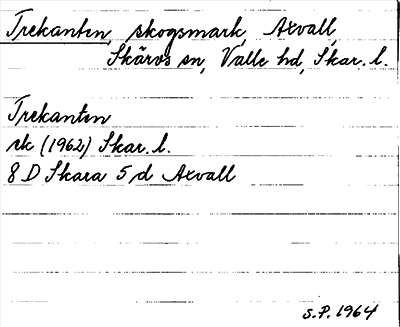 Trekanten, skogsmark, Axvall,
Skärvs sn, Valle hd, Skar. l.
Trekanten
rk (1962) Skar. l.
8 D Skara 5 d Axvall
S.P. 1964